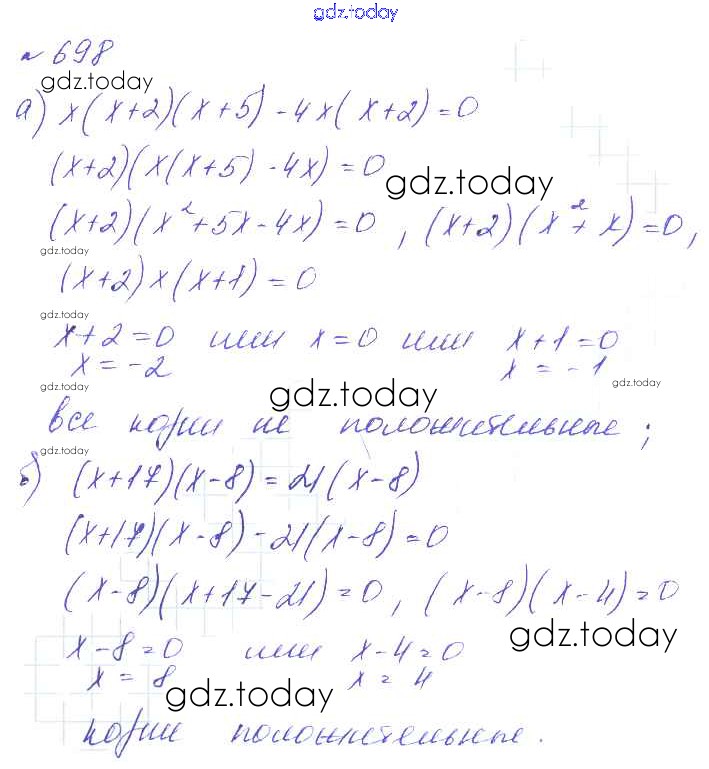 gdz.today
№ 698
gdz.today
а) x(x+2)(x+5)-4x(x+2)=0
(x+2)(x(x+5)-4x)=0
gdz.today
(x+2)(x²+5x-4x)=0, (x+2)(x²+x)=0,
gdz.today
(x+2)x(x+1)=0
gdz.today
x+2=0 или x=0 или x+1=0
x=-2 x=-1
gdz.today gdz.today gdz.today
все корни не положительные;
gdz.today
б) (x+17)(x-8)=21(x-8)
(x+17)(x-8)-21(x-8)=0
(x-8)(x+17-21)=0, (x-8)(x-4)=0
gdz.today
x-8=0 или x-4=0
x=8 x=4
gdz.today
корни положительные.